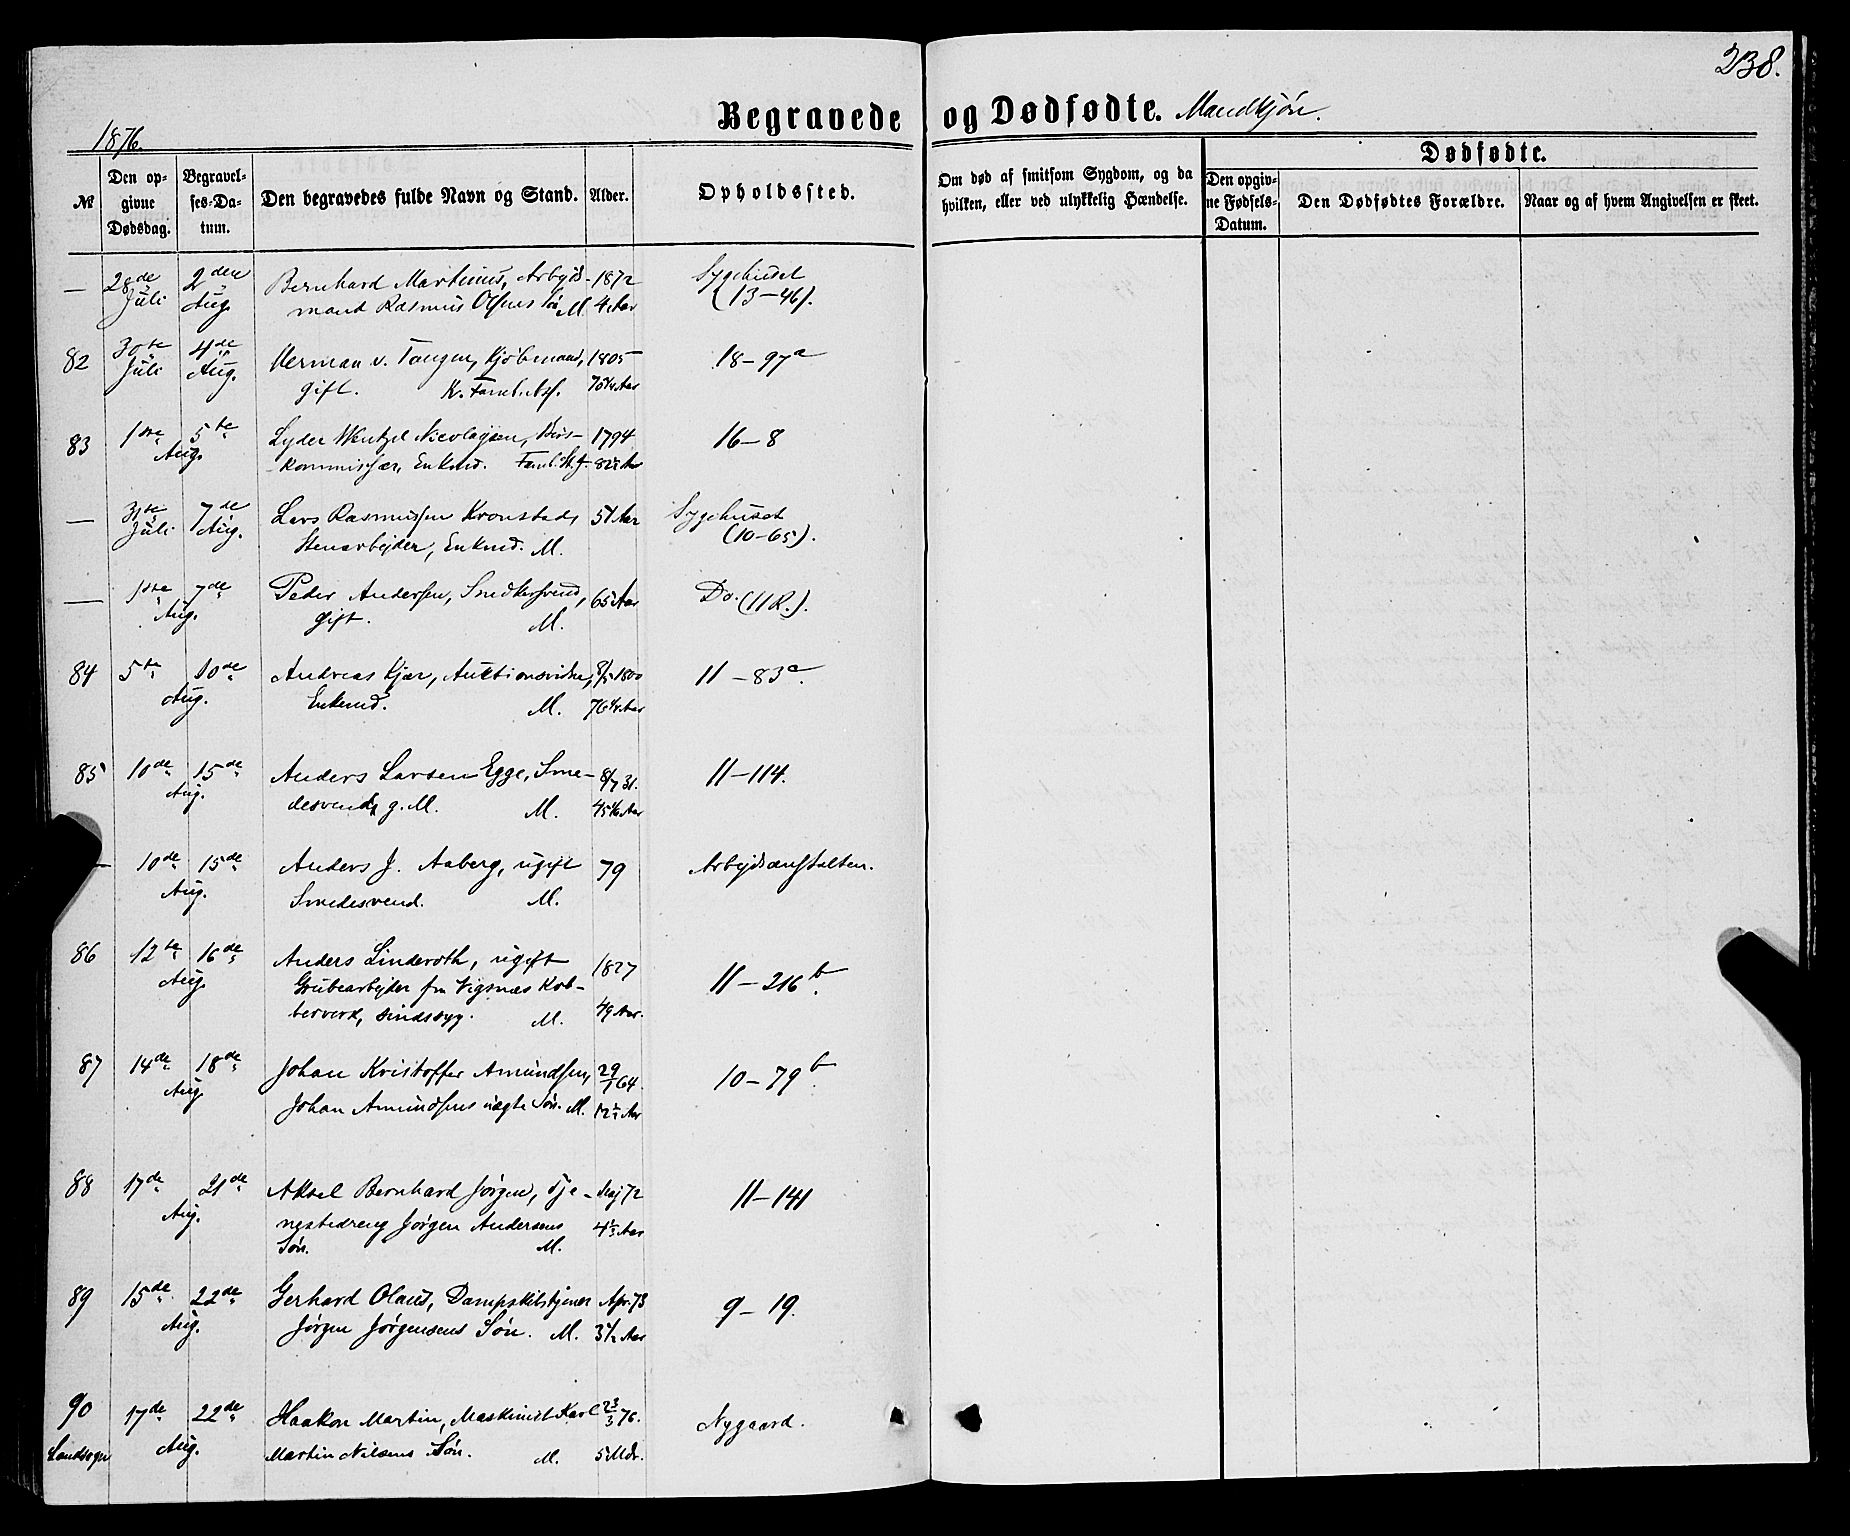 238.
Begravede og Dødfødte. Mandkjøn.
1876.
No. Den opgivne Dødsdag. Begravelses-Datum. Den begravedes fulde Navn og Stand. Alder. Opholdssted. Om død af smitsom Sygdom, og da hvilken, eller ved ulykkelig Hændelse. Dødfødte.
Den opgivne Fødsels-Datum. Den Dødfødtes Forældre. Naar og af hvem Angivelsen er skeet.
— 28de Juli 2den Aug. Bernhard Martinus, Arbejds- 1872 Sygehuset
mand Rasmus Olsens Søn M. 4 Aar (13–46).
82 30te Juli 4de Aug. Herman v. Tangen, Kjøbmand, 1805 18–97a
gift. K. Famil.bgs.
83 1ste 5te Aug. Lyder Wentzel Nicolaysen, 1794 16–8
kommissær, Enkmd. Famil.
— 31te Juli 7de Aug. Lars Rasmussen Kronstad, 51 Aar Sygehuset
Stenarbejder, Enkmd. M. (10–65).
— 1ste 7de Aug. Peder Andersen, Snedkersvend, 65 Aar Do. (11R.).
gift. M.
84 5te 10de Aug. Andreas Kjær, Auktionsvidne, 1800 11–83a.
Enkemd. M. 76 Aar
85 10de 15de Aug. Anders Larsen Egge, Sme- 8/7 31. 11–114.
desvend, g. M. M. 45 Aar
— 10de 15de Aug. Anders J. Aaberg, ugift 79 Arbejdsanstalten.
Smedesvend. M.
86 12te 16de Aug. Anders Linderoth, ugift 1827 11–216b.
Grubearbejder fra Vigsnæs Kob-
berverk, sindssyg. M. 49 Aar.
87 14de 18de Aug. Johan Kristoffer Amundsen, 29/1 64. 10–79b.
Johan Amundsens ægte Søn. M. 12 Aar
88 17de 21de Aug. Aksel Bernhard Jørgen, Tje- Maj 72 11–141
nestedreng Jørgen Andersens
Søn. M.
89 15de 22de Aug. Gerhard Olaus, Dampskibstjener Apr. 73 9–19.
Jørgen Jørgensens Søn. M. 3 1/2 Aar
90 17de 22de Aug. Haakon Martin, Maskinist Karl 23/3 76. Nygaard.
Landsogn Martin Nilsens Søn. M. 5 Mdr.